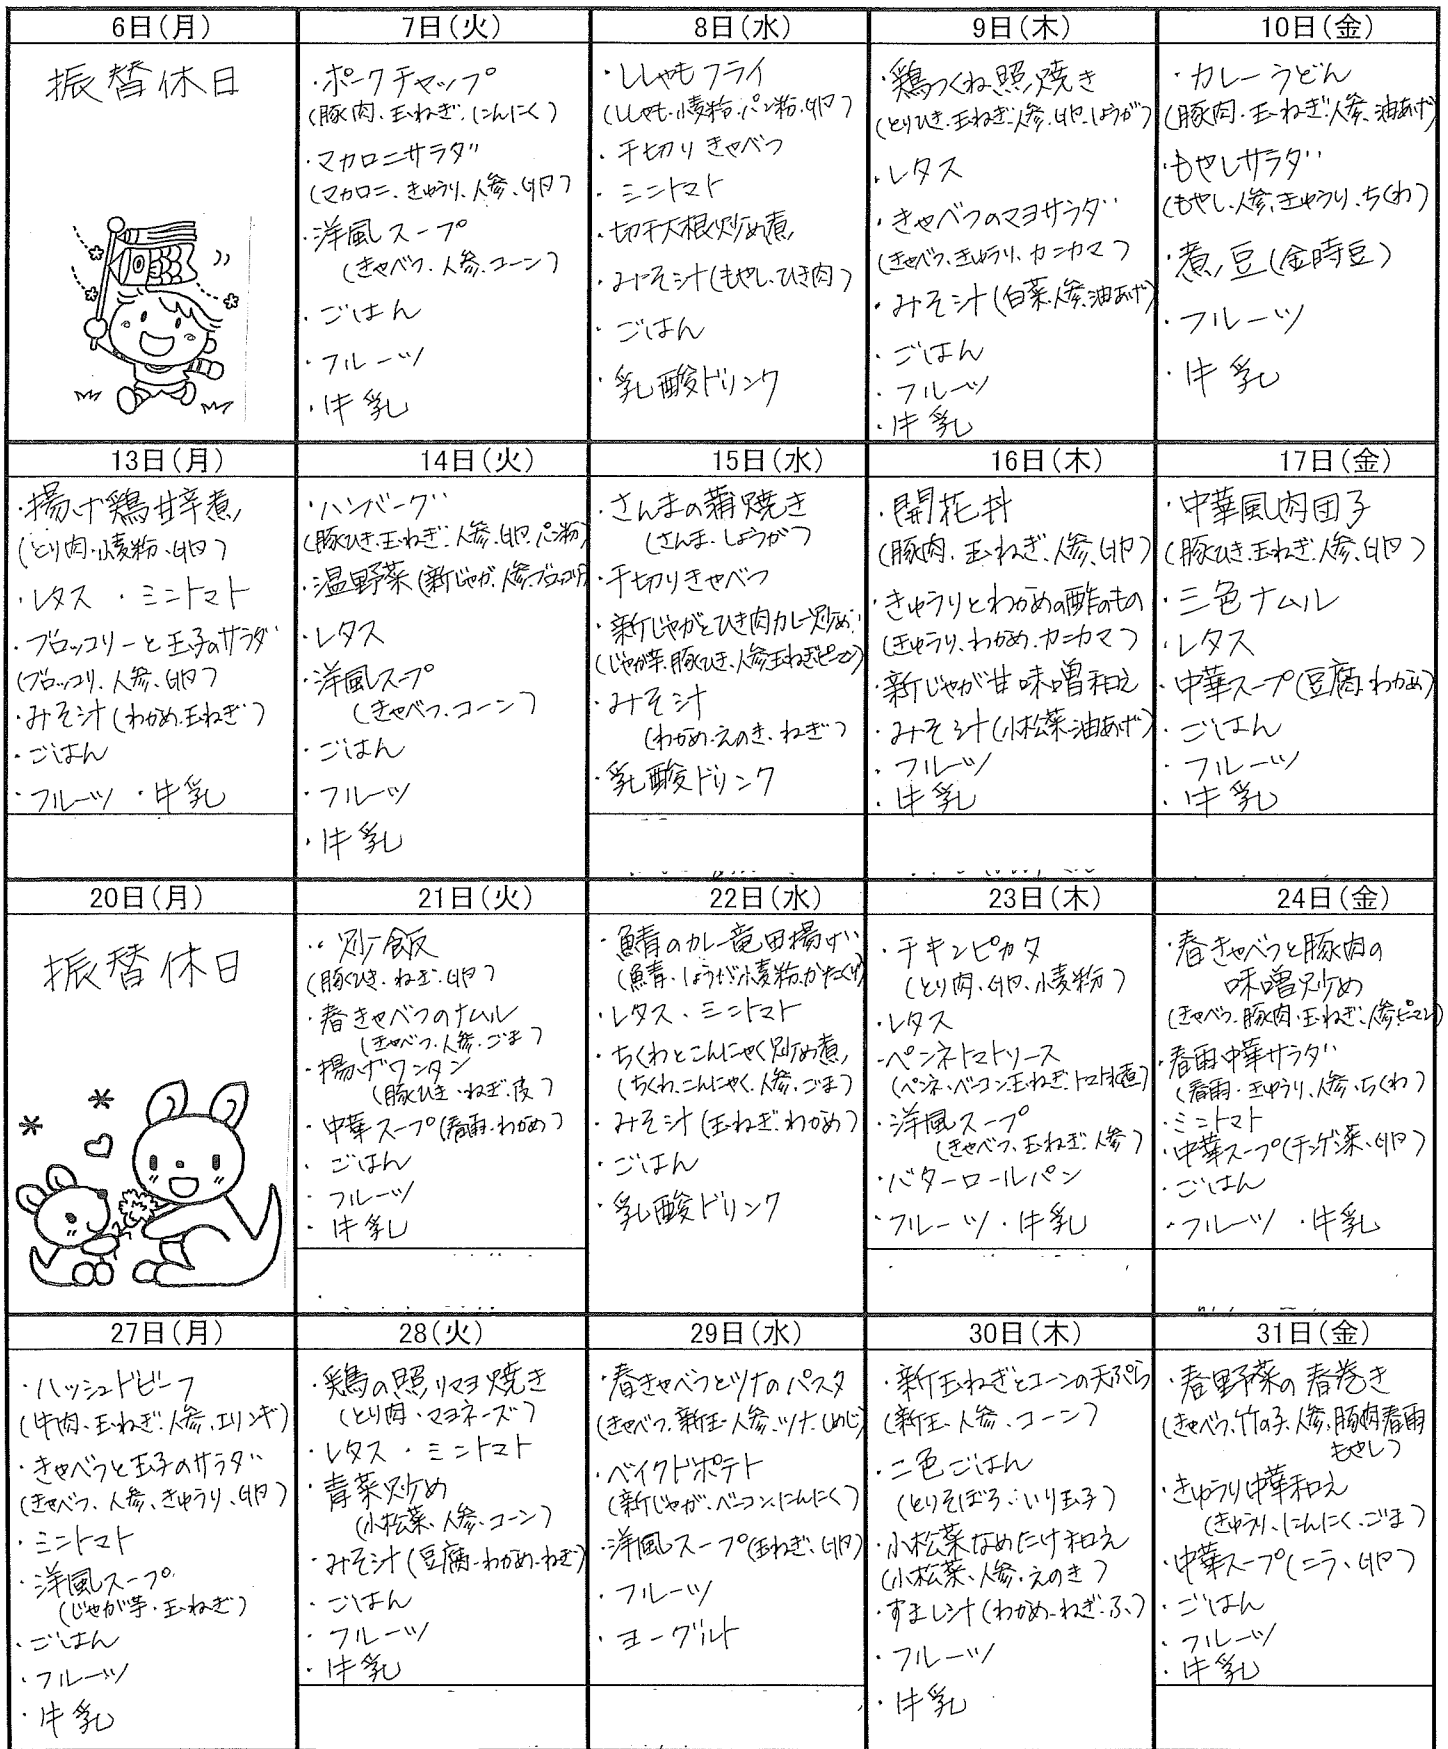 6日(月)
振替休日
7日(火)
・ポークチャップ
(豚肉、玉ねぎ、にんにく)
・マカロニサラダ
(マカロニ、きゅうり、人参、卵)
・洋風スープ
(きゃべつ、人参、コーン)
・ごはん
・フルーツ
・牛乳
8日(水)
・ししゃもフライ
(ししゃも・小麦粉・パン粉・卵)
・千切りきゃべつ
・ミニトマト
・切干大根炒め煮
・みそ汁(もやし、ひき肉)
・ごはん
・乳酸ドリンク
9日(木)
・鶏つくね照焼き
(とりひき、玉ねぎ、人参、卵、しょうが)
・レタス
・きゃべつのマヨサラダ
(きゃべつ、きゅうり、カニカマ)
・みそ汁(白菜、人参、油あげ)
・ごはん
・フルーツ
・牛乳
10日(金)
・カレーうどん
(豚肉、玉ねぎ、人参、油あげ)
・もやしサラダ
(もやし、人参、きゅうり、ちくわ)
・煮豆(金時豆)
・フルーツ
・牛乳
13日(月)
・揚げ鶏甘辛煮
(とり肉・小麦粉・卵)
・レタス ・ミニトマト
・ブロッコリーと玉子のサラダ
(ブロッコリ、人参、卵)
・みそ汁(わかめ、玉ねぎ)
・ごはん
・フルーツ ・牛乳
14日(火)
・ハンバーグ
(豚ひき、玉ねぎ、人参、卵、パン粉)
・温野菜(新じゃが、人参、ブロッコリ)
・レタス
・洋風スープ
(きゃべつ、コーン)
・ごはん
・フルーツ
・牛乳
15日(水)
・さんまの蒲焼き
(さんま、しょうが)
・千切りきゃべつ
・新じゃがとひき肉カレー炒め
(じゃが芋、豚ひき、人参玉ねぎピーマン)
・みそ汁
(わかめ、えのき、ねぎ)
・乳酸ドリンク
16日(木)
・開花丼
(豚肉、玉ねぎ、人参、卵)
・きゅうりとわかめの酢のもの
(きゅうり、わかめ、カニカマ)
・新じゃが甘味噌和え
・みそ汁(小松菜、油あげ)
・フルーツ
・牛乳
17日(金)
・中華風肉団子
(豚ひき、玉ねぎ、人参、卵)
・三色ナムル
・レタス
・中華スープ(豆腐、わかめ)
・ごはん
・フルーツ
・牛乳
20日(月)
振替休日
21日(火)
・炒飯
(豚ひき、ねぎ、卵)
・春きゃべつのナムル
(きゃべつ、人参、ごま)
・揚げワンタン
(豚ひき、ねぎ、皮)
・中華スープ(春雨・わかめ)
・ごはん
・フルーツ
・牛乳
22日(水)
・鯖のカレー竜田揚げ
(鯖・しょうが小麦粉、かたくり)
・レタス、ミニトマト
・ちくわとこんにゃく炒め煮
(ちくわ、こんにゃく、人参、ごま)
・みそ汁(玉ねぎ、わかめ)
・ごはん
・乳酸ドリンク
23日(木)
・チキンピカタ
(とり肉、卵、小麦粉)
・レタス
・ペンネトマトソース
(ペンネ・ベーコン玉ねぎ、トマト水煮)
・洋風スープ
(きゃべつ、玉ねぎ、人参)
・バターロールパン
・フルーツ・牛乳
24日(金)
・春きゃべつと豚肉の
味噌炒め
(きゃべつ、豚肉・玉ねぎ、人参ピーマン)
・春雨中華サラダ
(春雨・きゅうり、人参、ちくわ)
・ミニトマト
・中華スープ(チンゲン菜、卵)
・ごはん
・フルーツ ・牛乳
27日(月)
・ハッシュドビーフ
(牛肉、玉ねぎ、人参、エリンギ)
・きゃべつと玉子のサラダ
(きゃべつ、人参、きゅうり、卵)
・ミニトマト
・洋風スープ
(じゃが芋・玉ねぎ)
・ごはん
・フルーツ
・牛乳
28(火)
・鶏の照りマヨ焼き
(とり肉・マヨネーズ)
・レタス ・ミニトマト
・青菜炒め
(小松菜、人参、コーン)
・みそ汁(豆腐、わかめ、ねぎ)
・ごはん
・フルーツ
・牛乳
29日(水)
・春きゃべつとツナのパスタ
(きゃべつ、新玉、人参、ツナ、しめじ)
・ベイクドポテト
(新じゃが、ベーコン、にんにく)
・洋風スープ(玉ねぎ、卵)
・フルーツ
・ヨーグルト
30日(木)
・新玉ねぎとコーンの天ぷら
(新玉、人参、コーン)
・二色ごはん
(とりそぼろ・いり玉子)
・小松菜なめたけ和え
(小松菜、人参、えのき)
・すまし汁(わかめ、ねぎ、ふ)
・フルーツ
・牛乳
31日(金)
・春野菜の春巻き
(きゃべつ、竹の子、人参、豚肉春雨
もやし)
・きゅうり中華和え
(きゅうり、にんにく、ごま)
・中華スープ(ニラ、卵)
・ごはん
・フルーツ
・牛乳